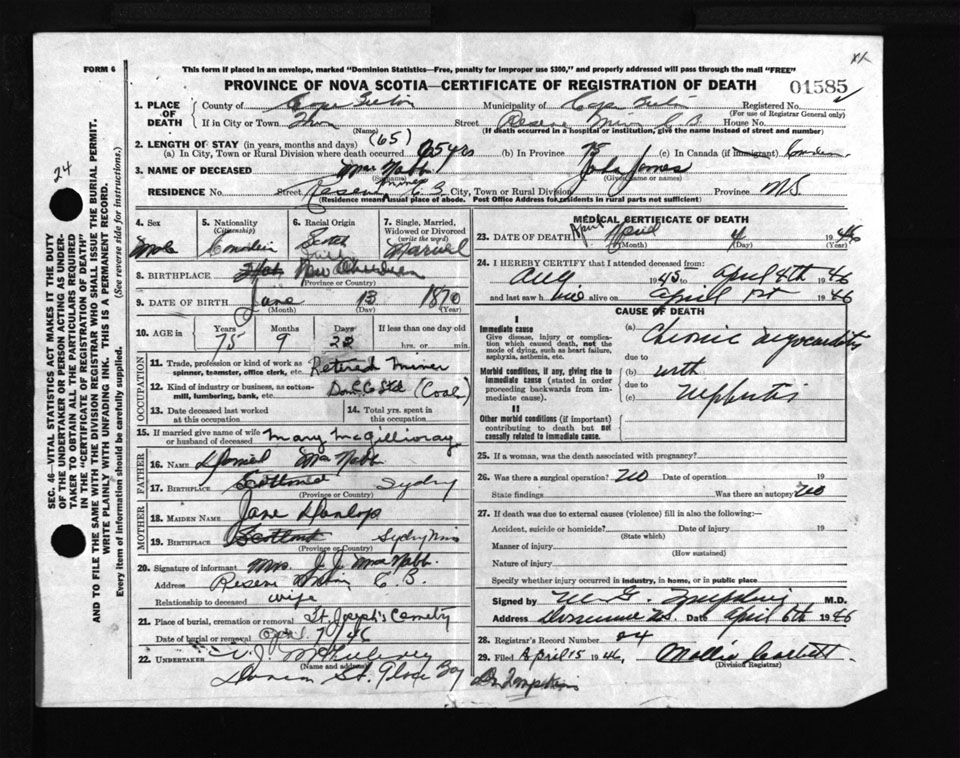 FORM 6
This form if placed in an envelope, marked "Dominion Statistics—Free, penalty for improper use $300," and properly addressed will pass through the mail "FREE"
PROVINCE OF NOVA SCOTIA—CERTIFICATE OF REGISTRATION OF DEATH
01585
24
SEC. 46—VITAL STATISTICS ACT MAKES IT THE DUTY
OF THE UNDERTAKER OR PERSON ACTING AS UNDER-
TAKER TO OBTAIN ALL THE PARTICULARS REQUIRED
IN THE "CERTIFICATE OF REGISTRATION OF DEATH"
AND TO FILE THE SAME WITH THE DIVISION REGISTRAR WHO SHALL ISSUE THE BURIAL PERMIT.
WRITE PLAINLY WITH UNFADING INK. THIS IS A PERMANENT RECORD.
Every item of Information should be carefully supplied. (See reverse side for instructions.)
1. PLACE OF DEATH County of Cape Breton Municipality of Cape Breton Registered No.
(For use of Registrar General only)
If in City or Town Street Reserve Mines C B House No.
(Name) (If death occurred in a hospital or institution, give the name instead of street and number)
2. LENGTH OF STAY (in years, months and days) (65)
(a) In City, Town or Rural Division where death occurred 65 yrs (b) In Province 75 (c) In Canada (if immigrant)
3. NAME OF DECEASED Mac Nabb John James
(Surname) (Given name or names)
RESIDENCE No. Street Reserve Mines C B City, Town or Rural Division Province N S
(Residence means usual place of abode. Post Office Address for residents in rural parts not sufficient)
4. Sex
Male
5. Nationality
(Citizenship)
Canadian
6. Racial Origin
Scotch
7. Single, Married,
Widowed or Divorced
(write the word)
Married
8. BIRTHPLACE New Aberdeen
(Province or Country)
9. DATE OF BIRTH June 13 1870
(Month) (Day) (Year)
10. AGE in Years Months Days If less than one day old
75 9 22 hrs. or min.
OCCUPATION
11. Trade, profession or kind of work as
spinner, teamster, office clerk, etc. Retired Miner
12. Kind of industry or business, as cotton-
mill, lumbering, bank, etc. Dom. C. Ltd (Coal)
13. Date deceased last worked
at this occupation
14. Total yrs. spent in
this occupation
15. If married give name of wife
or husband of deceased Mary McGillivray
FATHER
16. NAME Daniel Mac Nabb
17. BIRTHPLACE Scotland Sydney
(Province or Country)
MOTHER
18. MAIDEN NAME Jane Dunlop
19. BIRTHPLACE Scotland Sydney Mines
(Province or Country)
20. Signature of informant Mrs. J. J. Mac Nabb
Address Reserve Mines C. B.
Relationship to deceased wife
21. Place of burial, cremation or removal St. Joseph's Cemetery
Date of burial or removal April 7/46
22. UNDERTAKER
(Name and address)
St. Glace Bay
MEDICAL CERTIFICATE OF DEATH
23. DATE OF DEATH April April 4 1946
(Month) (Day) (Year)
24. I HEREBY CERTIFY that I attended deceased from:
Aug 1945 to April 4th 1946
and last saw h im alive on April 1st 1946
CAUSE OF DEATH
I
Immediate cause
Give disease, injury or complica-
tion which caused death, not the
mode of dying, such as heart failure,
asphyxia, asthenia, etc.
(a) Chronic Myocarditis
due to
Morbid conditions, if any, giving rise to
immediate cause (stated in order
proceeding backwards from im-
mediate cause).
(b) with
due to
(c) Nephritis
II
Other morbid conditions (if important)
contributing to death but not
causally related to immediate cause.
25. If a woman, was the death associated with pregnancy?
26. Was there a surgical operation? No Date of operation 19
State findings Was there an autopsy? No
27. If death was due to external causes (violence) fill in also the following:
Accident, suicide or homicide? Date of injury 19
(State which)
Manner of injury
(How sustained)
Nature of injury
Specify whether injury occurred in industry, in home, or in public place
Signed by M. G. Tompkins M.D.
Address Dominion N.S. Date April 6th 1946
28. Registrar's Record Number 24
29. Filed April 15 1946 Mollie Corbett
(Division Registrar)
Dr Tompkins